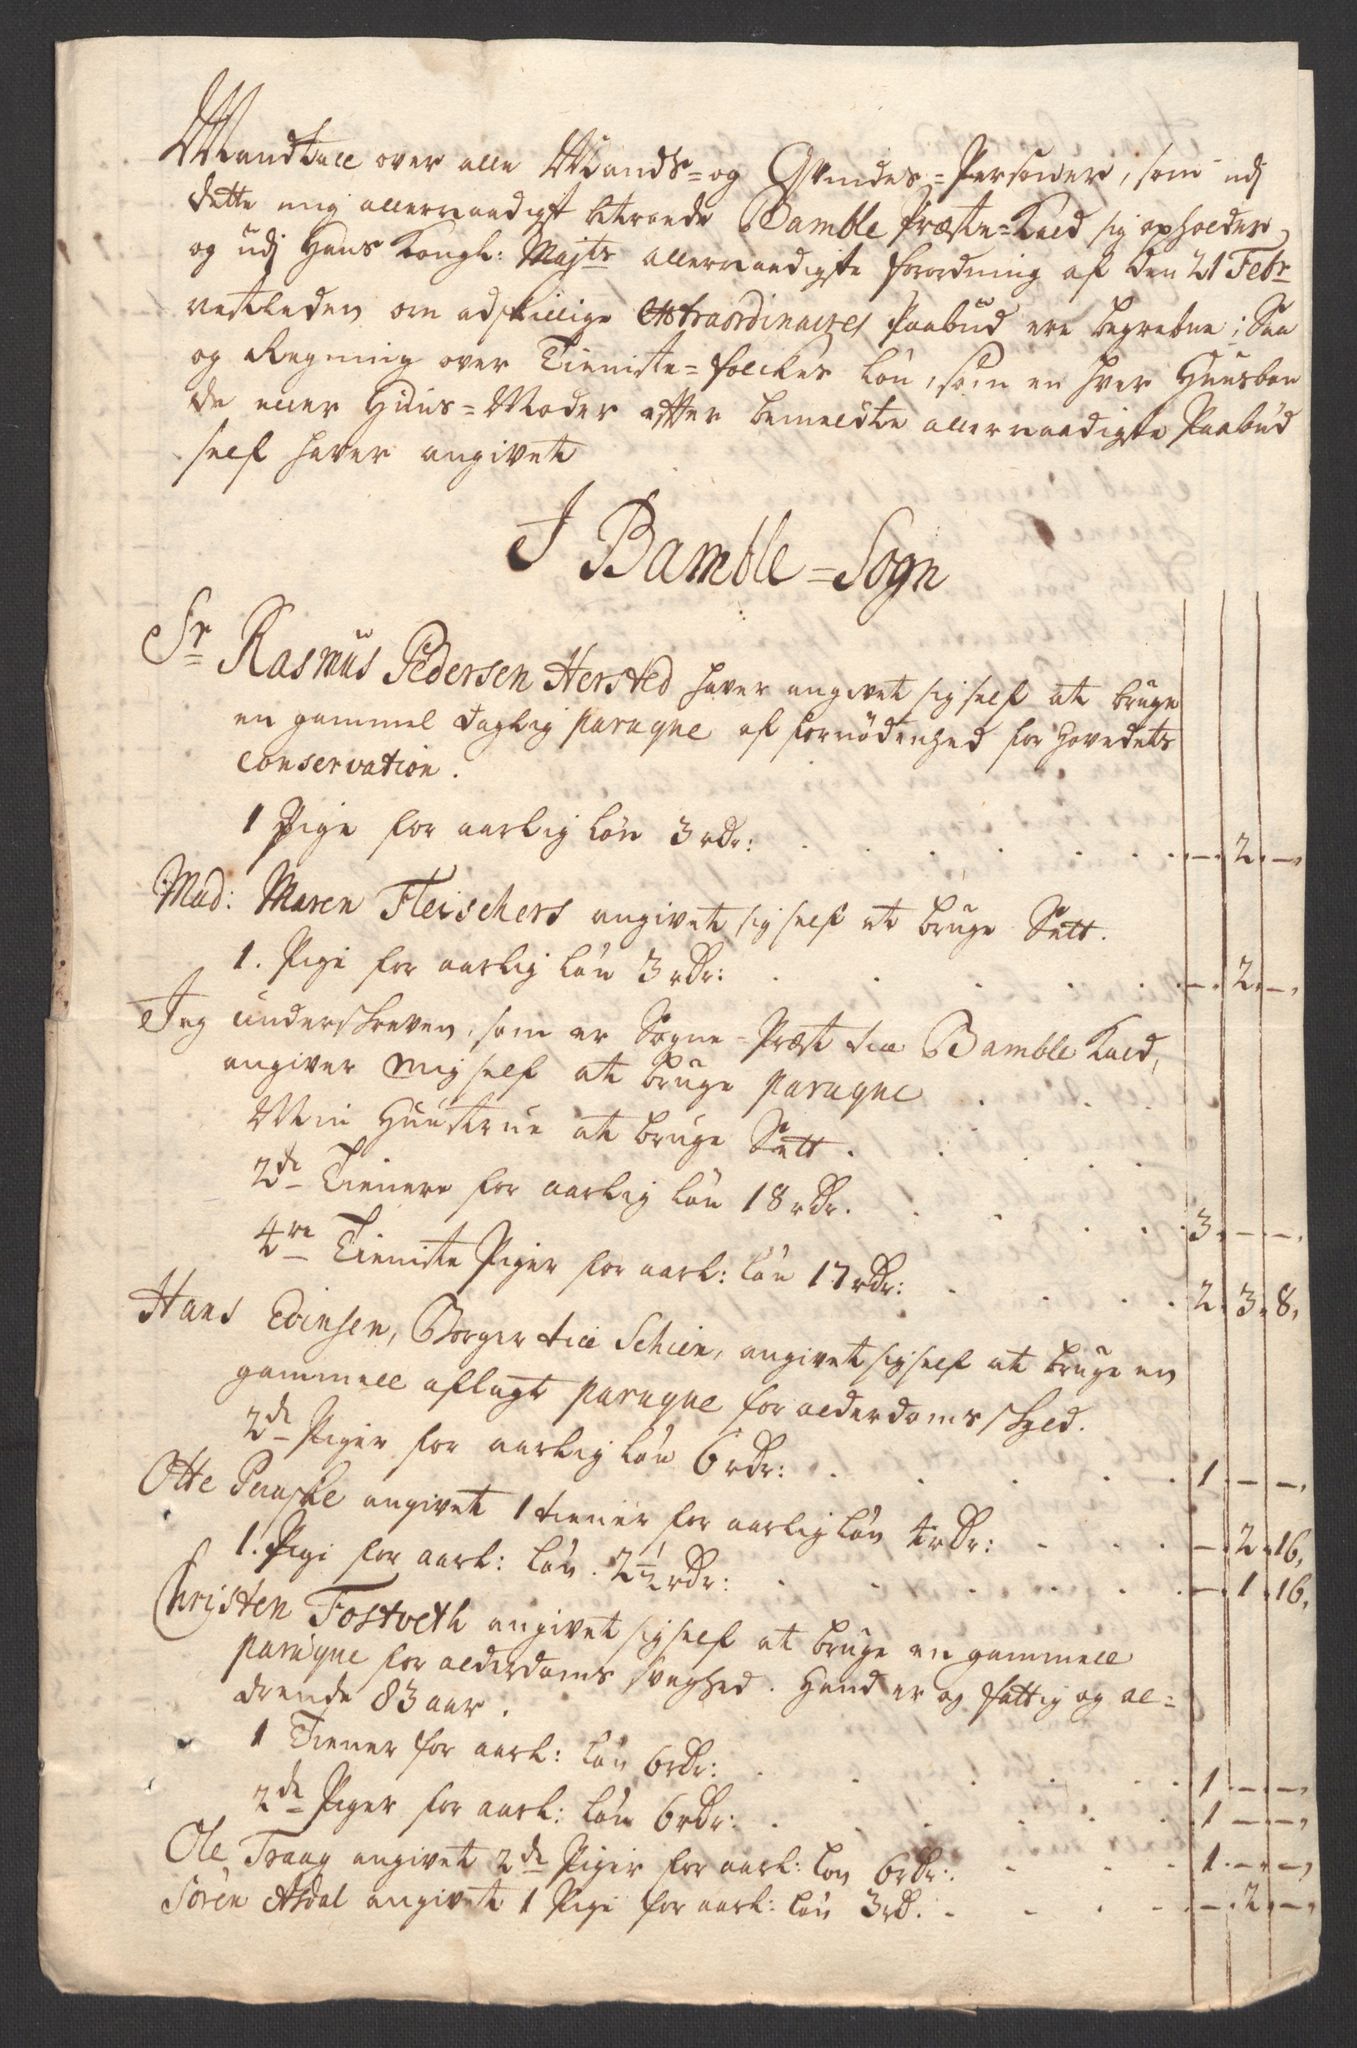 Mandtall over alle Mands= og Qvindes=Persohner, som udj
dette mig allernaadigst betroede Bamble Præste=Kald sig opholder,
og udj Hans Kongl: Majts allernaadigste forordning af den 21 Febr
nestleden om adskillige extraordinaires Paabud ere begrebne; Saa
og Regning over Tieniste=folckes løn, som en hver Huusbon
de eller Huus=Moder efter bemeldte allernaadigste Paabud
self haver angivet
I Bamble=Sogn
Sr Rasmus Pedersen Hersted haver angivet sig self at bruge
en gammel daglig paruque af fornødenhed for hovedets
conservation.
1 Pige for aarlig løn 3 rdr: . . . . . . — . 2 . — ,
Mad: Maren Fleischers angivet sig self at bruge Sætt.
1. Pige for aarlig løn 3 rdr: . . . . . — . 2 . — ,
Jeg underskreven, som er Sogne=Præst till Bamble Kald,
angiver mig self at bruge paruque . . .
Min Huustrue at bruge Sætt . . . .
2de Tienere for aarlig løn 18 rdr. . . . . 3 . — . — ,
4re Tieniste Piger for aarl: løn 17 rdr: . . . . 2 . 3 . 8 ,
Hans Evensen, Borger till Schien, angivet sig self at bruge en
gammell aflagt paruque for alderdoms skyld.
2de Piger for aarlig løn 6 rdr: . . . . . 1 . — . — ,
Otte Penskle angivet 1 tiener for aarlig løn 4 rdr: . . . — . 2 . 16 ,
1. Pige for aarl: løn . 2½ rdr: . . . . . — . 1 . 16 ,
Christen Fostveth angivet sig self at bruge en gammell
paruque for alderdoms svaghed. Hand er og fattig og al=
drende 83 aar.
1 Tiener for aarl: løn 6 rdr: . . . . . 1 . — . — ,
2de Piger for aarl: løn 6 rdr: . . . . . 1 . — . — ,
Ole Traag angivet 2de Piger for aarl: løn 6 rdr: . . . 1 . — . — ,
Søren Asdal angivet 1 Pige for aarl: løn 3 rd. . . . — . 2 . — ,